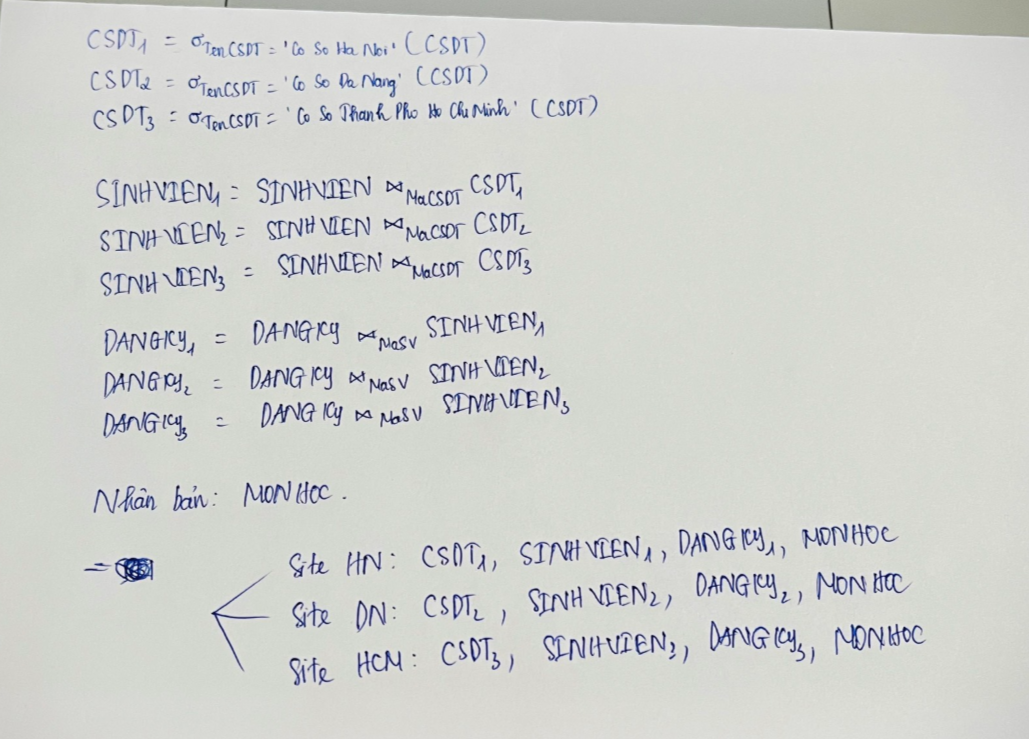 CSDT₁ = σ TenCSDT = 'Co So Ha Noi' (CSDT)
CSDT₂ = σ TenCSDT = 'Co So Da Nang' (CSDT)
CSDT₃ = σ TenCSDT = 'Co So Thanh Pho Ho Chi Minh' (CSDT)
SINHVIEN₁ = SINHVIEN ⋈ MaCSDT CSDT₁
SINHVIEN₂ = SINHVIEN ⋈ MaCSDT CSDT₂
SINHVIEN₃ = SINHVIEN ⋈ MaCSDT CSDT₃
DANGKY₁ = DANGKY ⋈ MaSV SINHVIEN₁
DANGKY₂ = DANGKY ⋈ MaSV SINHVIEN₂
DANGKY₃ = DANGKY ⋈ MaSV SINHVIEN₃
Nhân bản: MONHOC.
Site HN: CSDT₁, SINHVIEN₁, DANGKY₁, MONHOC
Site DN: CSDT₂, SINHVIEN₂, DANGKY₂, MONHOC
Site HCM: CSDT₃, SINHVIEN₃, DANGKY₃, MONHOC